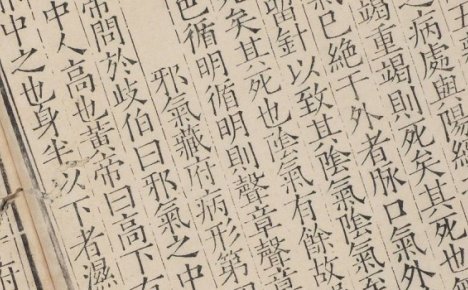 五
之病處與陽經
竭重竭則死矣其死也
氣已絕于外者脉口氣外
留針以致其陰氣陰氣至
死矣其死也陰氣有餘故
色循明循明則聲章聲章
邪氣藏府病形第
帝問於歧伯曰邪氣之中
中人高也黃帝曰高下有
中之也身半以下者濕
府